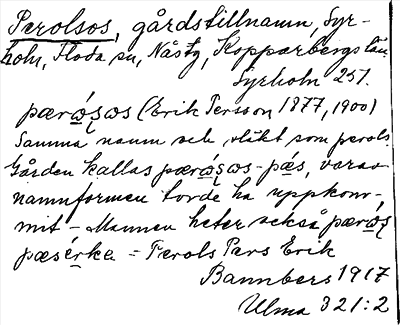 Perolsos, gårdstillnamn, Syr-
holn, Floda sn, Nåsty, Kopparbergs län
Syrholn 251.
pærǫ́ʂos (Erik Persson 1877, 1900)
Samma namn och släkt som perols
Gården kallas pærǫ́ʂos-pæs, varav
namnformen torde ha uppkom-
mit – Mannen heter också pærǫ́ʂ
pæsérke = Perols Pers Erik
Bannbers 1917
Ulma 321:2